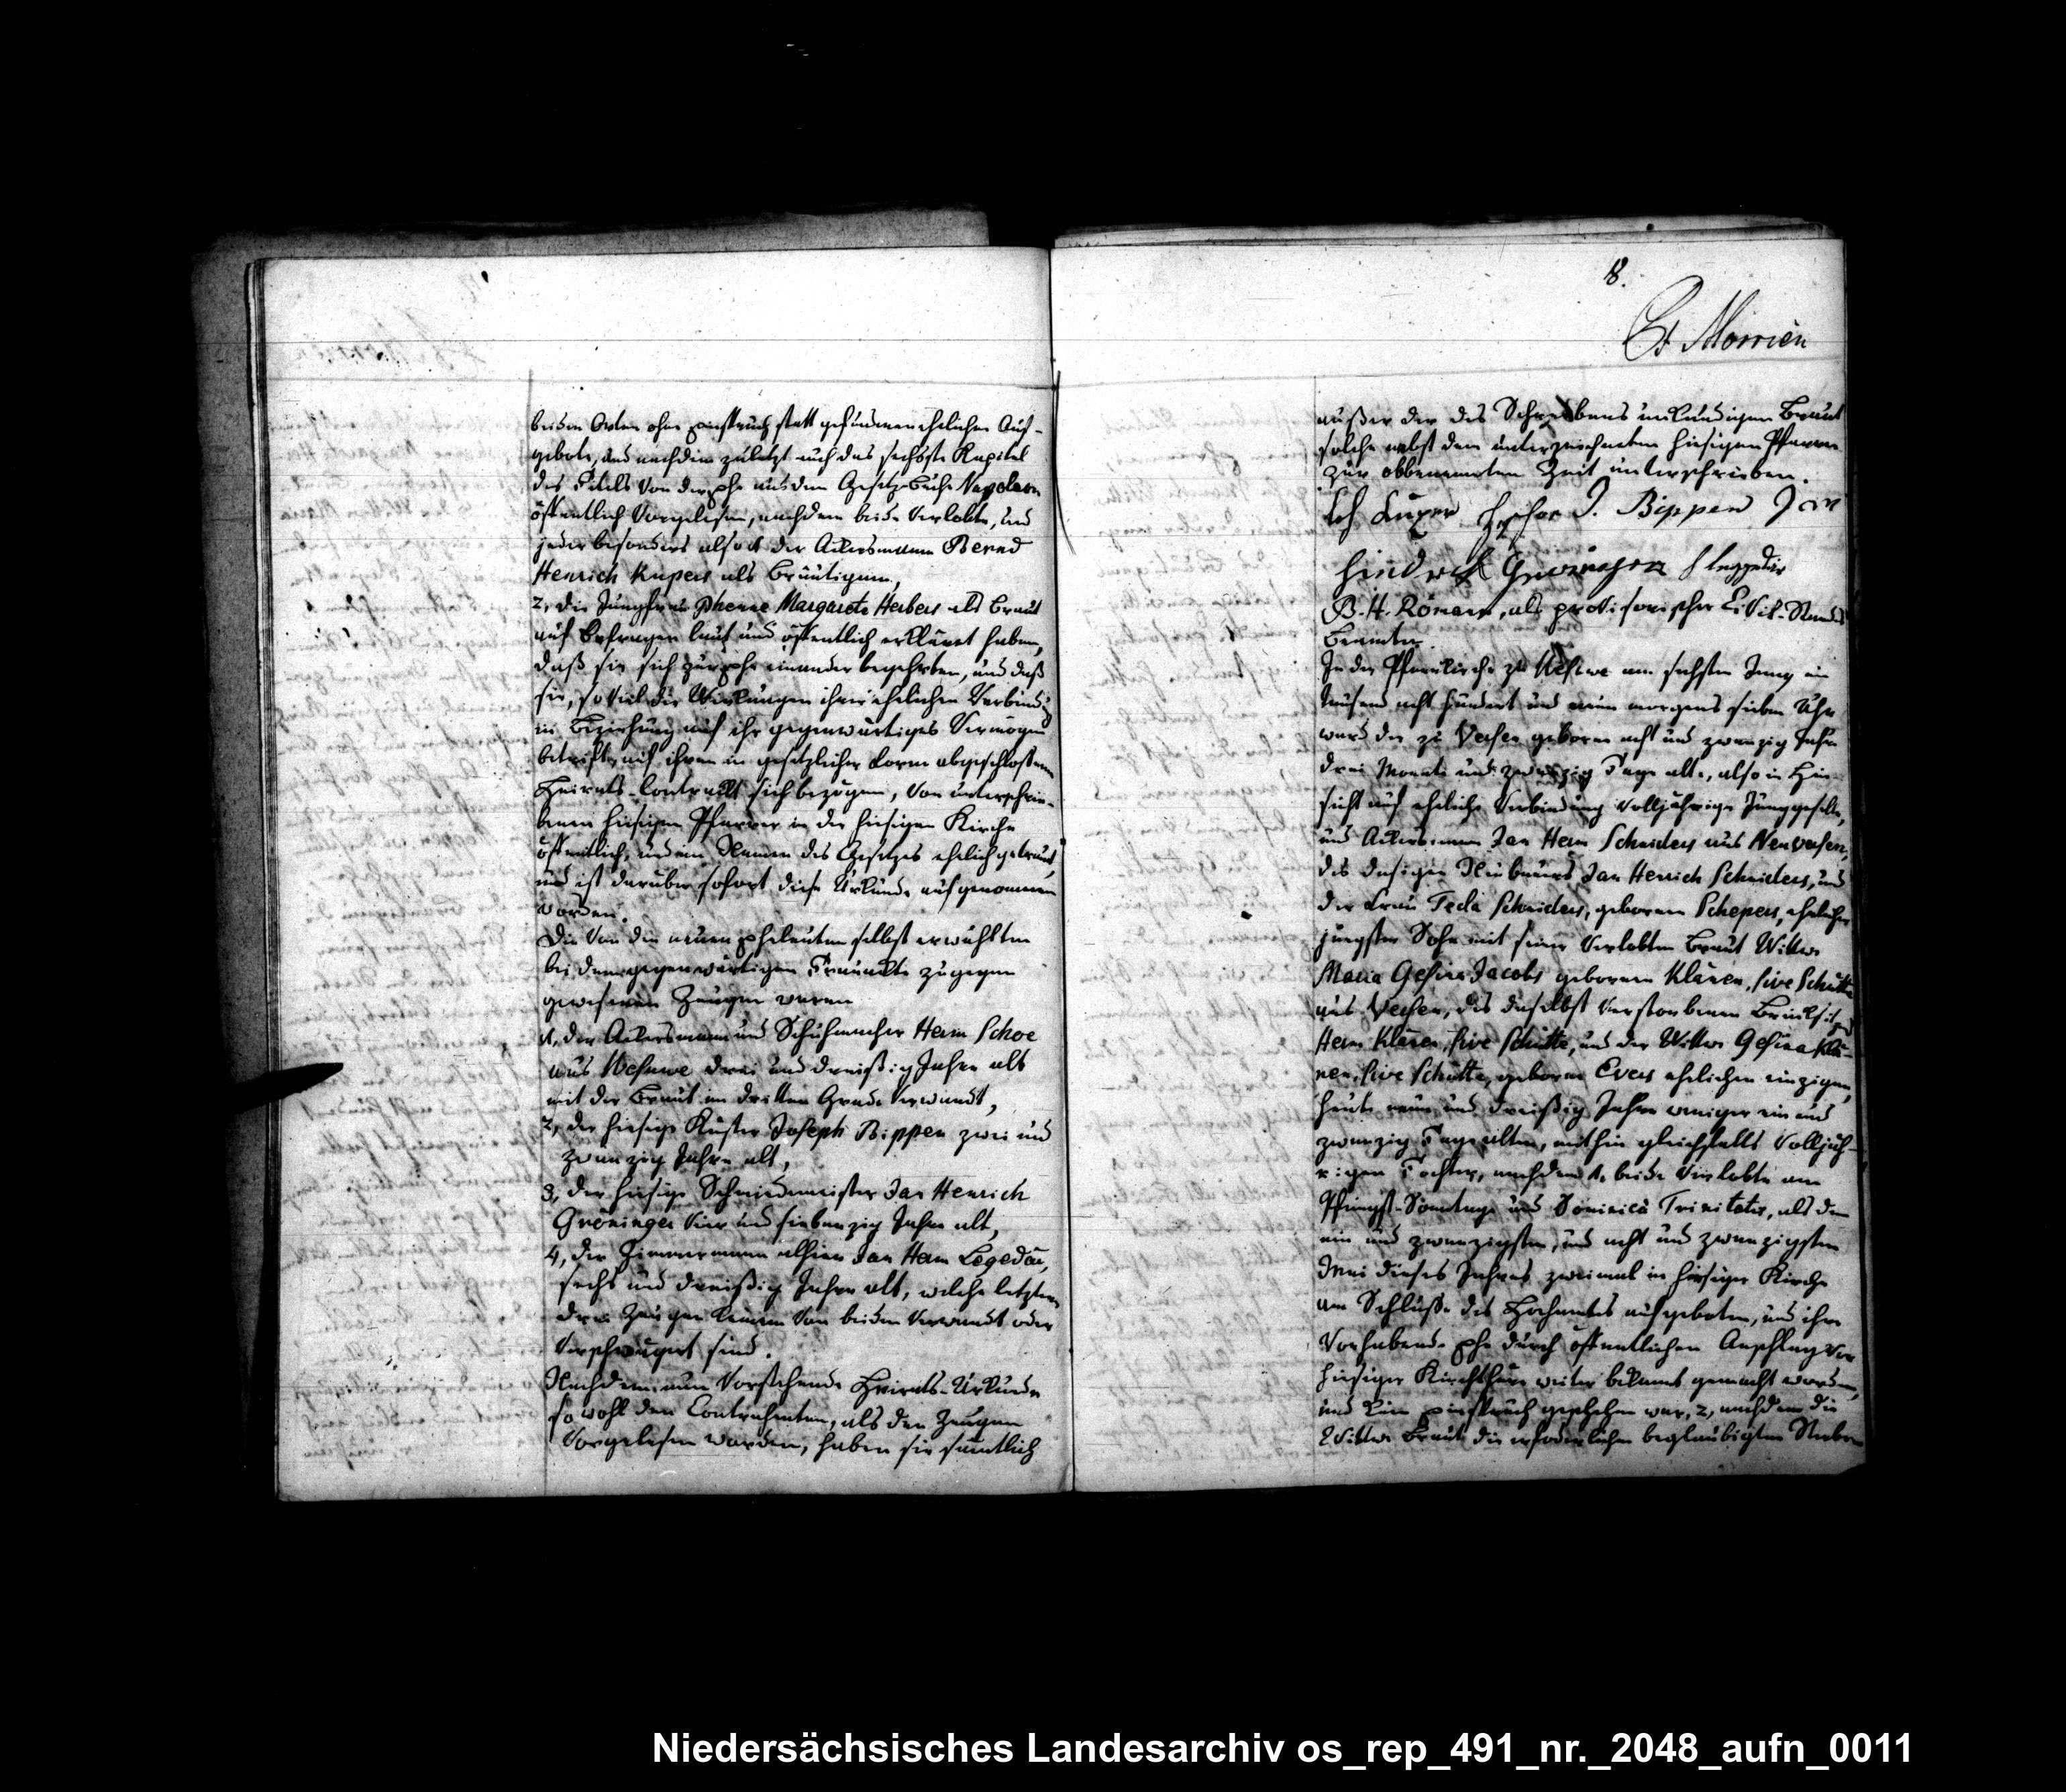 beiden Orten ohne Einspruch statt gefundenen ehelichen Auf-
gebote, und nachdem zuletzt auch das sechste Kapitel
des Titels von der Ehe aus dem Gesetzbuche Napoleon
öffentlich vorgelesen, nachdem beide Verlobte, und
jeder besonders also 1 der Ackersmann Bernd
Henrich Kupers als Bräutigam,
2, die Jungfrau Margareta Herbers als Braut
auf Befragen laut und öffentlich erkläret haben,
daß sie sich zur Ehe einander begehrten, und daß
sie, so viel die Wirkungen ihrer ehelichen Verbindg
in Beziehung auf ihr gegenwärtiges Vermögen
betrift, auf ihren in gesetzlicher Form abgeschloßenen
Heirats-Contrackt sich bezögen, von unterschrie-
benen hiesigen Pfarrer in der hiesigen Kirche
öffentlich, und im Namen des Gesetzes ehelich getraut,
und ist darüber sofort diese Urkunde aufgenommen
worden.
Die von den neuen Eheleuten selbst erwählten
bei dem gegenwärtigen Trauackte zugegen
gewesenen Zeugen waren
1, der Ackersmann und Schuhmacher Herm Schoe
aus Wesuwe drei und dreißig Jahre alt
mit der Braut im dritten Grade verwandt,
2, der hiesige Küster Joseph Bippen zwei und
zwanzig Jahre alt,
3, der hiesige Schmiedemeister Jan Henrich
Gröninger vier und siebenzig Jahre alt,
4, der Zimmermann allhier Jan Herm Legedär,
sechs und dreißig Jahre alt, welche letztern
drei Zeugen keinem von beiden verwandt oder
verschwägert sind.
Nachdem nun vorstehende Heirats-Urkunde
sowohl den Contrahenten, als den Zeugen
vorgelesen worden, haben sie sämtlich
18.
Morrien
außer der des Schreibens unkundigen Braut
solche nebst dem unterzeichneten hiesigen Pfarrer
zur obbenannten Zeit unterschrieben.
J. Bippen Jan
Hindrick
B. H. Römann, als provisorischer Civil-Stands
Beamter
In der Pfarrkirche zu Wesuwe am sechsten Juny ein
tausend acht hundert und neun morgens sieben Uhr
ward der zu Versen geborne acht und zwanzig Jahre
drei Monate und zwanzig Tage alte, also in Hin-
sicht auf eheliche Verbindung volljährige Junggeselle,
und Ackersmann Jan Herm Schniders aus Neuversen,
des dasigen Neubauers Jan Henrich Schniders, und
der Frau Tecla Schniders, gebornen Schepers, ehelicher
jüngster Sohn mit seiner verlobten Braut Wittwe
Maria Gesina Jacobs gebornen Klären, sive Schütte
aus Versen, des daselbst verstorbenen Brinksitzers
Herm Klären, sive Schütte, und der Wittwe Gesina Klä-
ren, sive Schütte, geborne Evers ehelichen einzigen,
heute neun und dreißig Jahre weniger ein und
zwanzig Tage alten, mithin gleichfalls volljäh-
rigen Tochter, nachdem 1, beide Verlobte am
Pfingst-Sonntage und Dominica Trinitatis, als den
ein und zwanzigsten, und acht und zwanzigsten
Mai dieses Jahres zweimal in hiesiger Kirche
am Schluße des Hochamtes aufgeboten, und ihre
vorhabende Ehe durch öffentlichen Anschlag vor
hiesiger Kirchthüre weiter bekannt gemacht worden,
und kein Einspruch geschehen war, 2, nachdem die
Wittwe Braut die erfoderlichen beglaubigten Sterbe-
Niedersächsisches Landesarchiv os_rep_491_nr._2048_aufn_0011